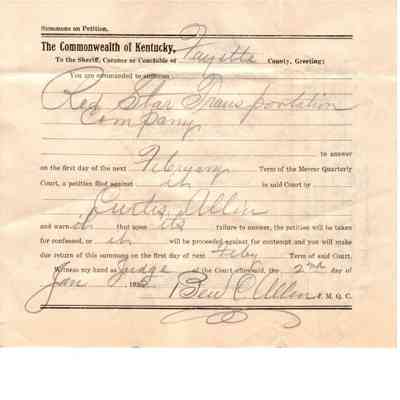 Summons on Petition.
The Commonwealth of Kentucky,
To the Sheriff, Coroner or Constable of Fayette County, Greeting:
You are commanded to summon
Red Star Transportation
Company
to answer
on the first day of the next February Term of the Mercer Quarterly
Court, a petition filed against it in said Court by
Curtis Allin
and warn it that upon its failure to answer, the petition will be taken
for confessed, or it will be proceeded against for contempt and you will make
due return of this summons on the first day of next Feby Term of said Court.
Witness my hand as Judge of the Court aforesaid, the 2nd day of
Jan 193 Ben C Allin P. M. Q. C.